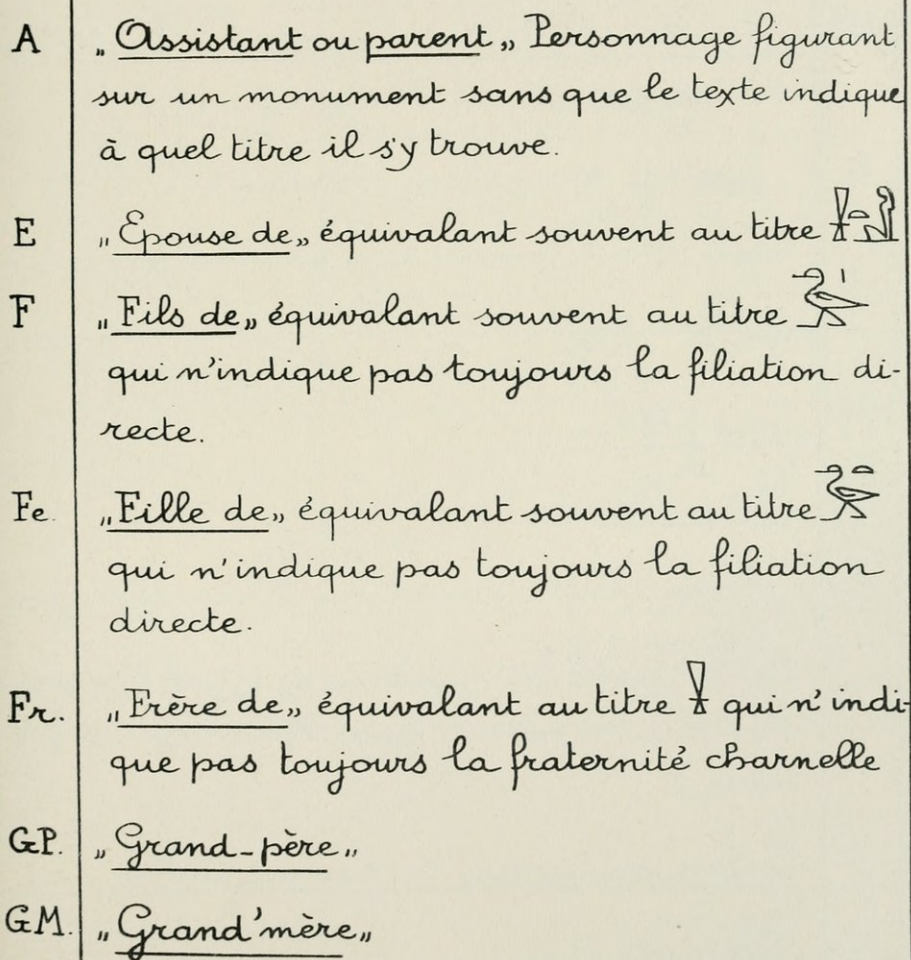 A „Assistant ou parent„ Personnage figurant
sur un monument sans que le texte indique
à quel titre il s'y trouve.
E „Epouse de„ équivalant souvent au titre 𓌢𓏏𓁐
F „Fils de„ équivalant souvent au titre 𓅭𓏤
qui n'indique pas toujours la filiation di-
recte.
Fe. „Fille de„ équivalant souvent au titre 𓅭𓏏
qui n'indique pas toujours la filiation
directe.
Fr. „Frère de„ équivalant au titre 𓌢 qui n'indi-
que pas toujours la fraternité charnelle
GP. „Grand-père„
GM. „Grand'mère„